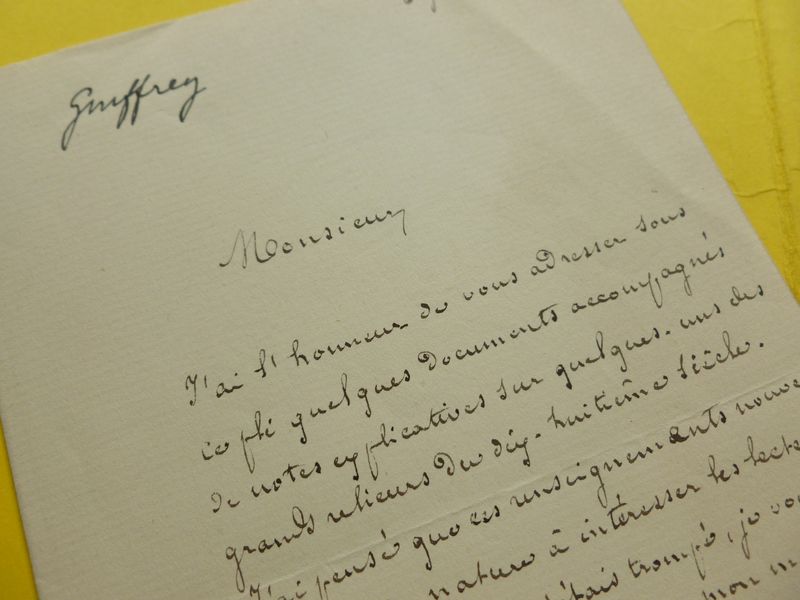 Guiffrey
Monsieur
J'ai l'honneur de vous adresser sous
ce pli quelques documents accompagnés
de notes explicatives sur quelques-uns des
grands relieurs du dix-huitième siècle.
J'ai pensé que ces renseignements nouve
nature à intéresser les lecte
étais trompé, je vou
mon m